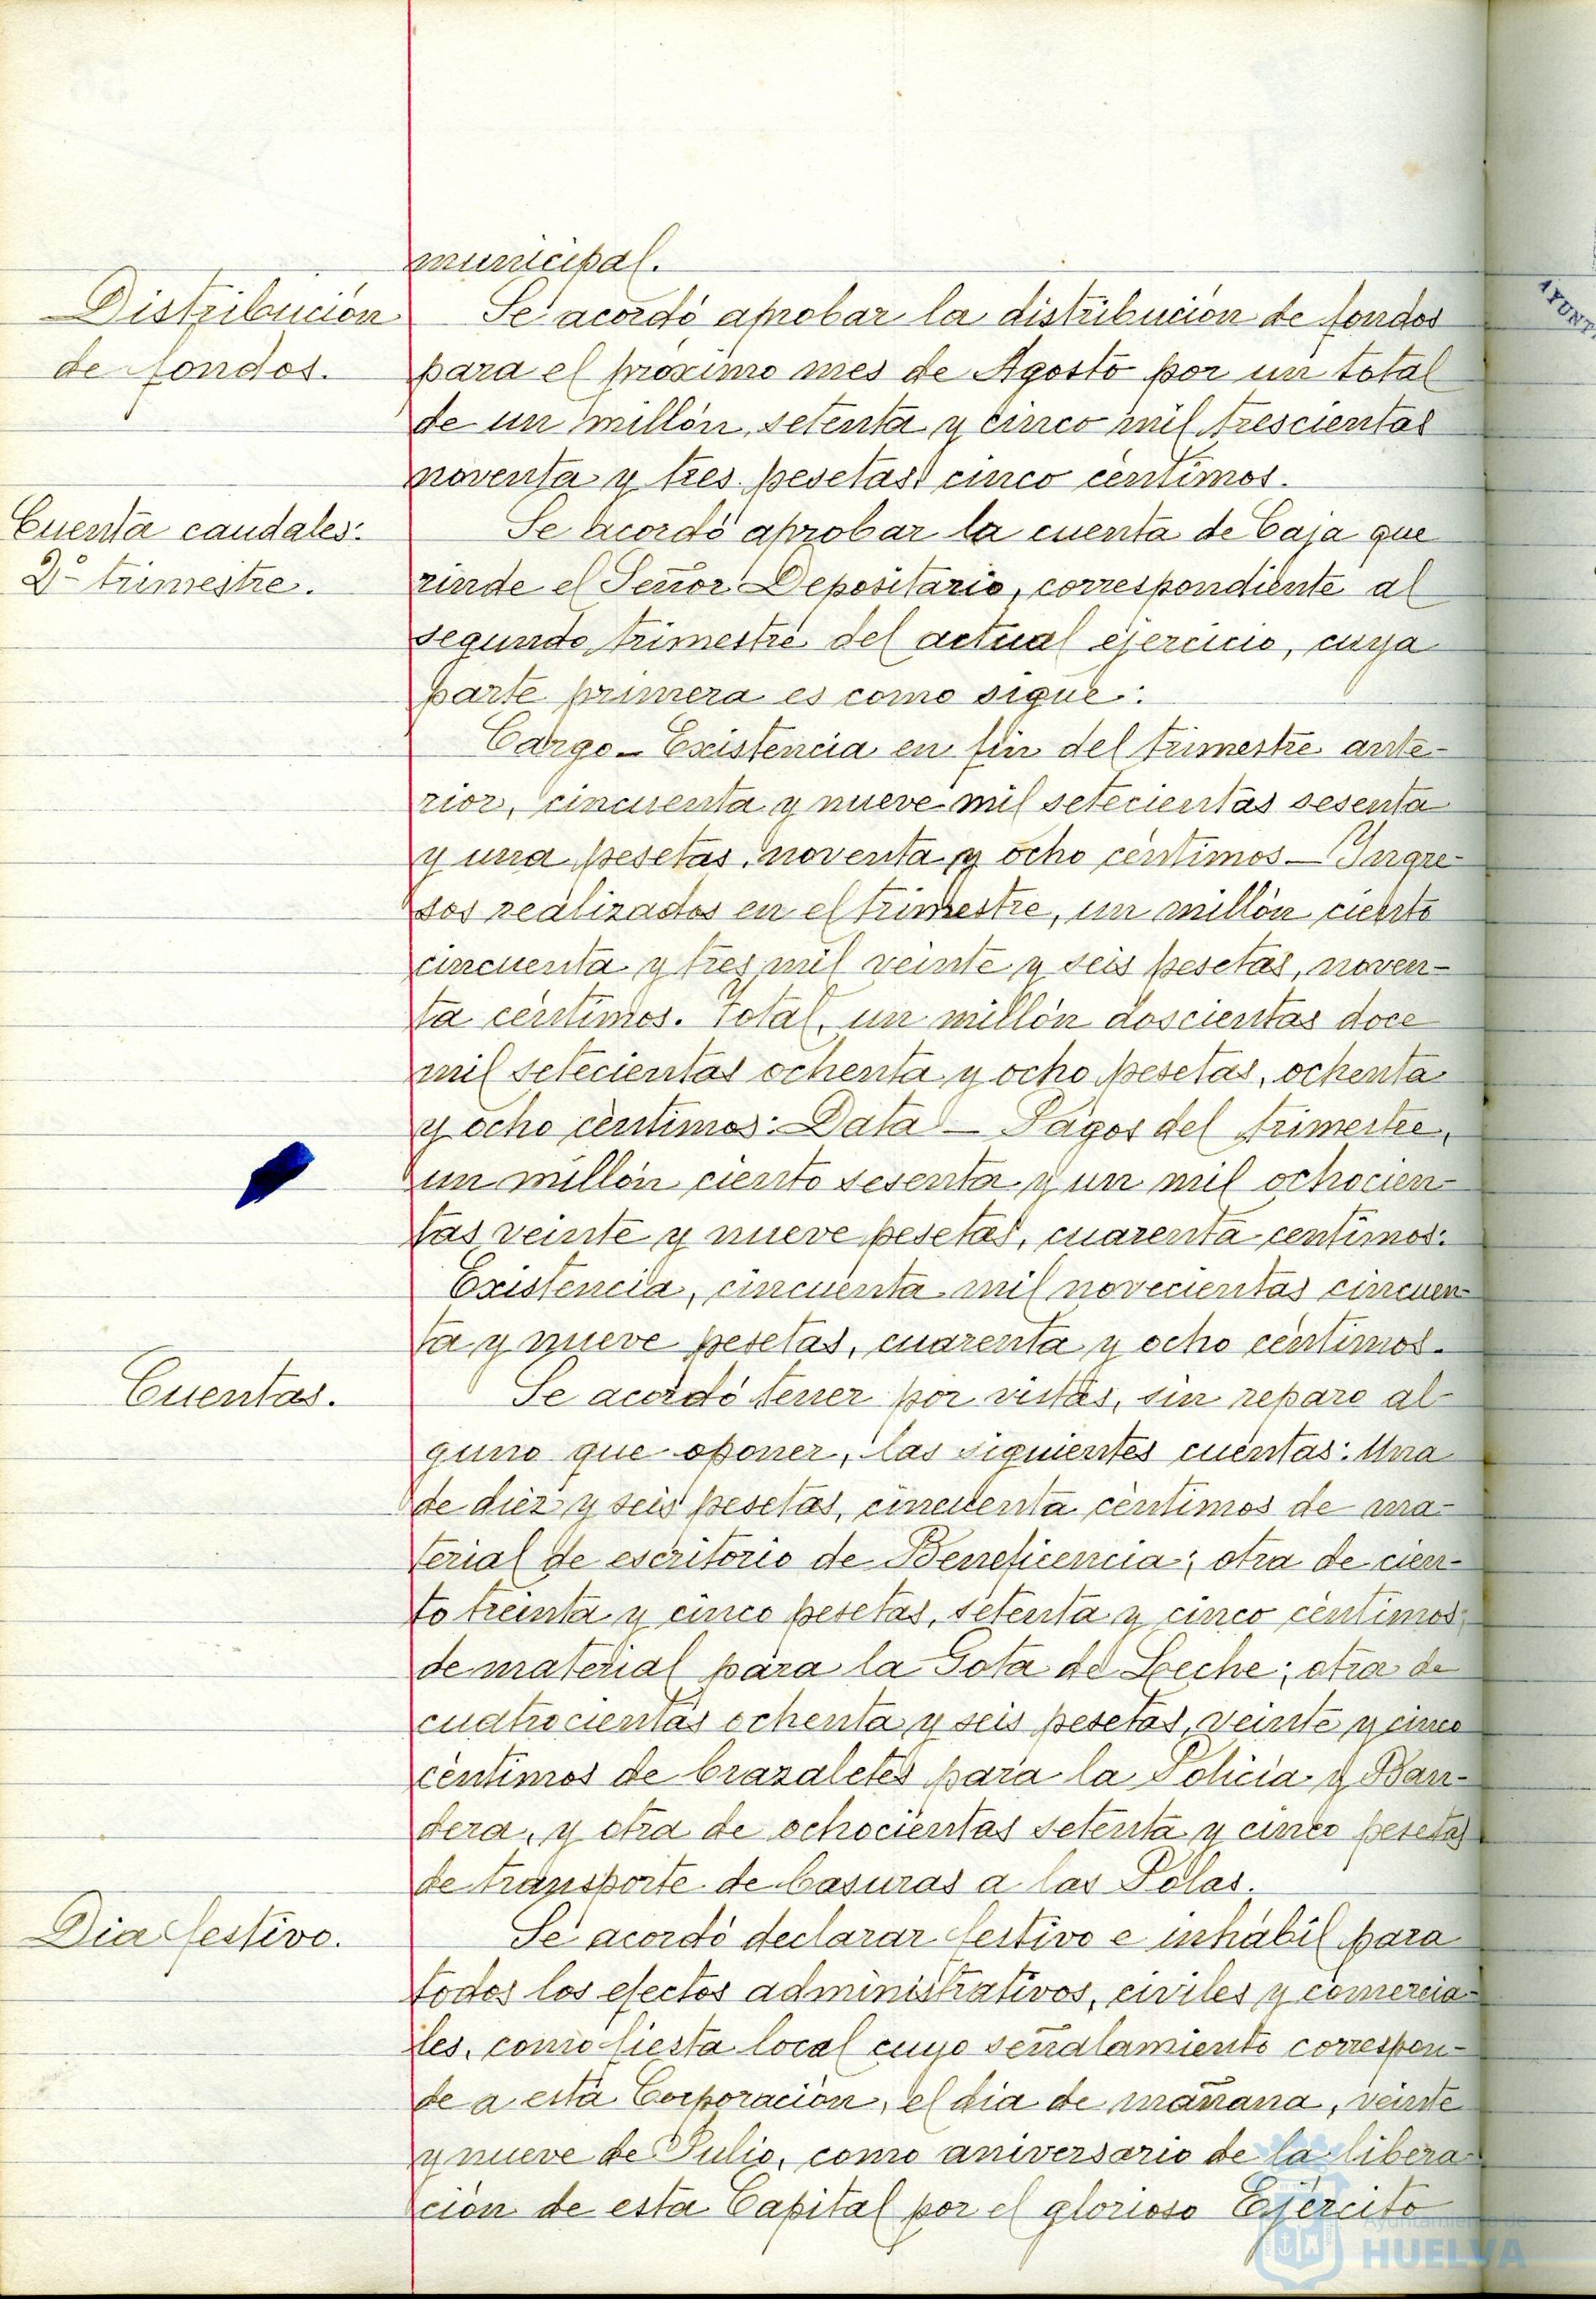 municipal.
Distribución
de fondos.
Se acordó aprobar la distribución de fondos
para el próximo mes de Agosto por un total
de un millón, setenta y cinco mil trescientas
noventa y tres pesetas cinco céntimos.
Cuenta caudales:
2º trimestre.
Se acordó aprobar la cuenta de Caja que
rinde el Señor Depositario, correspondiente al
segundo trimestre del actual ejercicio, cuya
parte primera es como sigue:
Cargo - Existencia en fin del trimestre ante-
rior, cincuenta y nueve mil setecientas sesenta
y una pesetas, noventa y ocho céntimos - Ingre-
sos realizados en el trimestre, un millón ciento
cincuenta y tres mil veinte y seis pesetas, noven-
ta céntimos. Total, un millón doscientas doce
mil setecientas ochenta y ocho pesetas, ochenta
y ocho céntimos: Data - Pagos del trimestre,
un millón ciento sesenta y un mil ochocien-
tas veinte y nueve pesetas, cuarenta centimos.
Existencia, cincuenta mil novecientas cincuen-
ta y nueve pesetas, cuarenta y ocho céntimos.
Cuentas.
Se acordó tener por vistas, sin reparo al-
guno que oponer, las siguientes cuentas: Una
de diez y seis pesetas, cincuenta céntimos de ma-
terial de escritorio de Beneficencia; otra de cien-
to treinta y cinco pesetas, setenta y cinco céntimos
de material para la Gota de Leche; otra de
cuatrocientas ochenta y seis pesetas, veinte y cinco
céntimos de brazaletes para la Policía y Ban-
dera, y otra de ochocientas setenta y cinco pesetas
de transporte de basuras a las Polas.
Dia festivo.
Se acordó declarar festivo e inhábil para
todos los efectos administrativos, civiles y comercia-
les, como fiesta local cuyo señalamiento correspon-
de a esta Corporación, el dia de mañana, veinte
y nueve de Julio, como aniversario de la libera-
ción de esta Capital por el glorioso Ejército
AYUNT
Ayuntamiento de
HUELVA